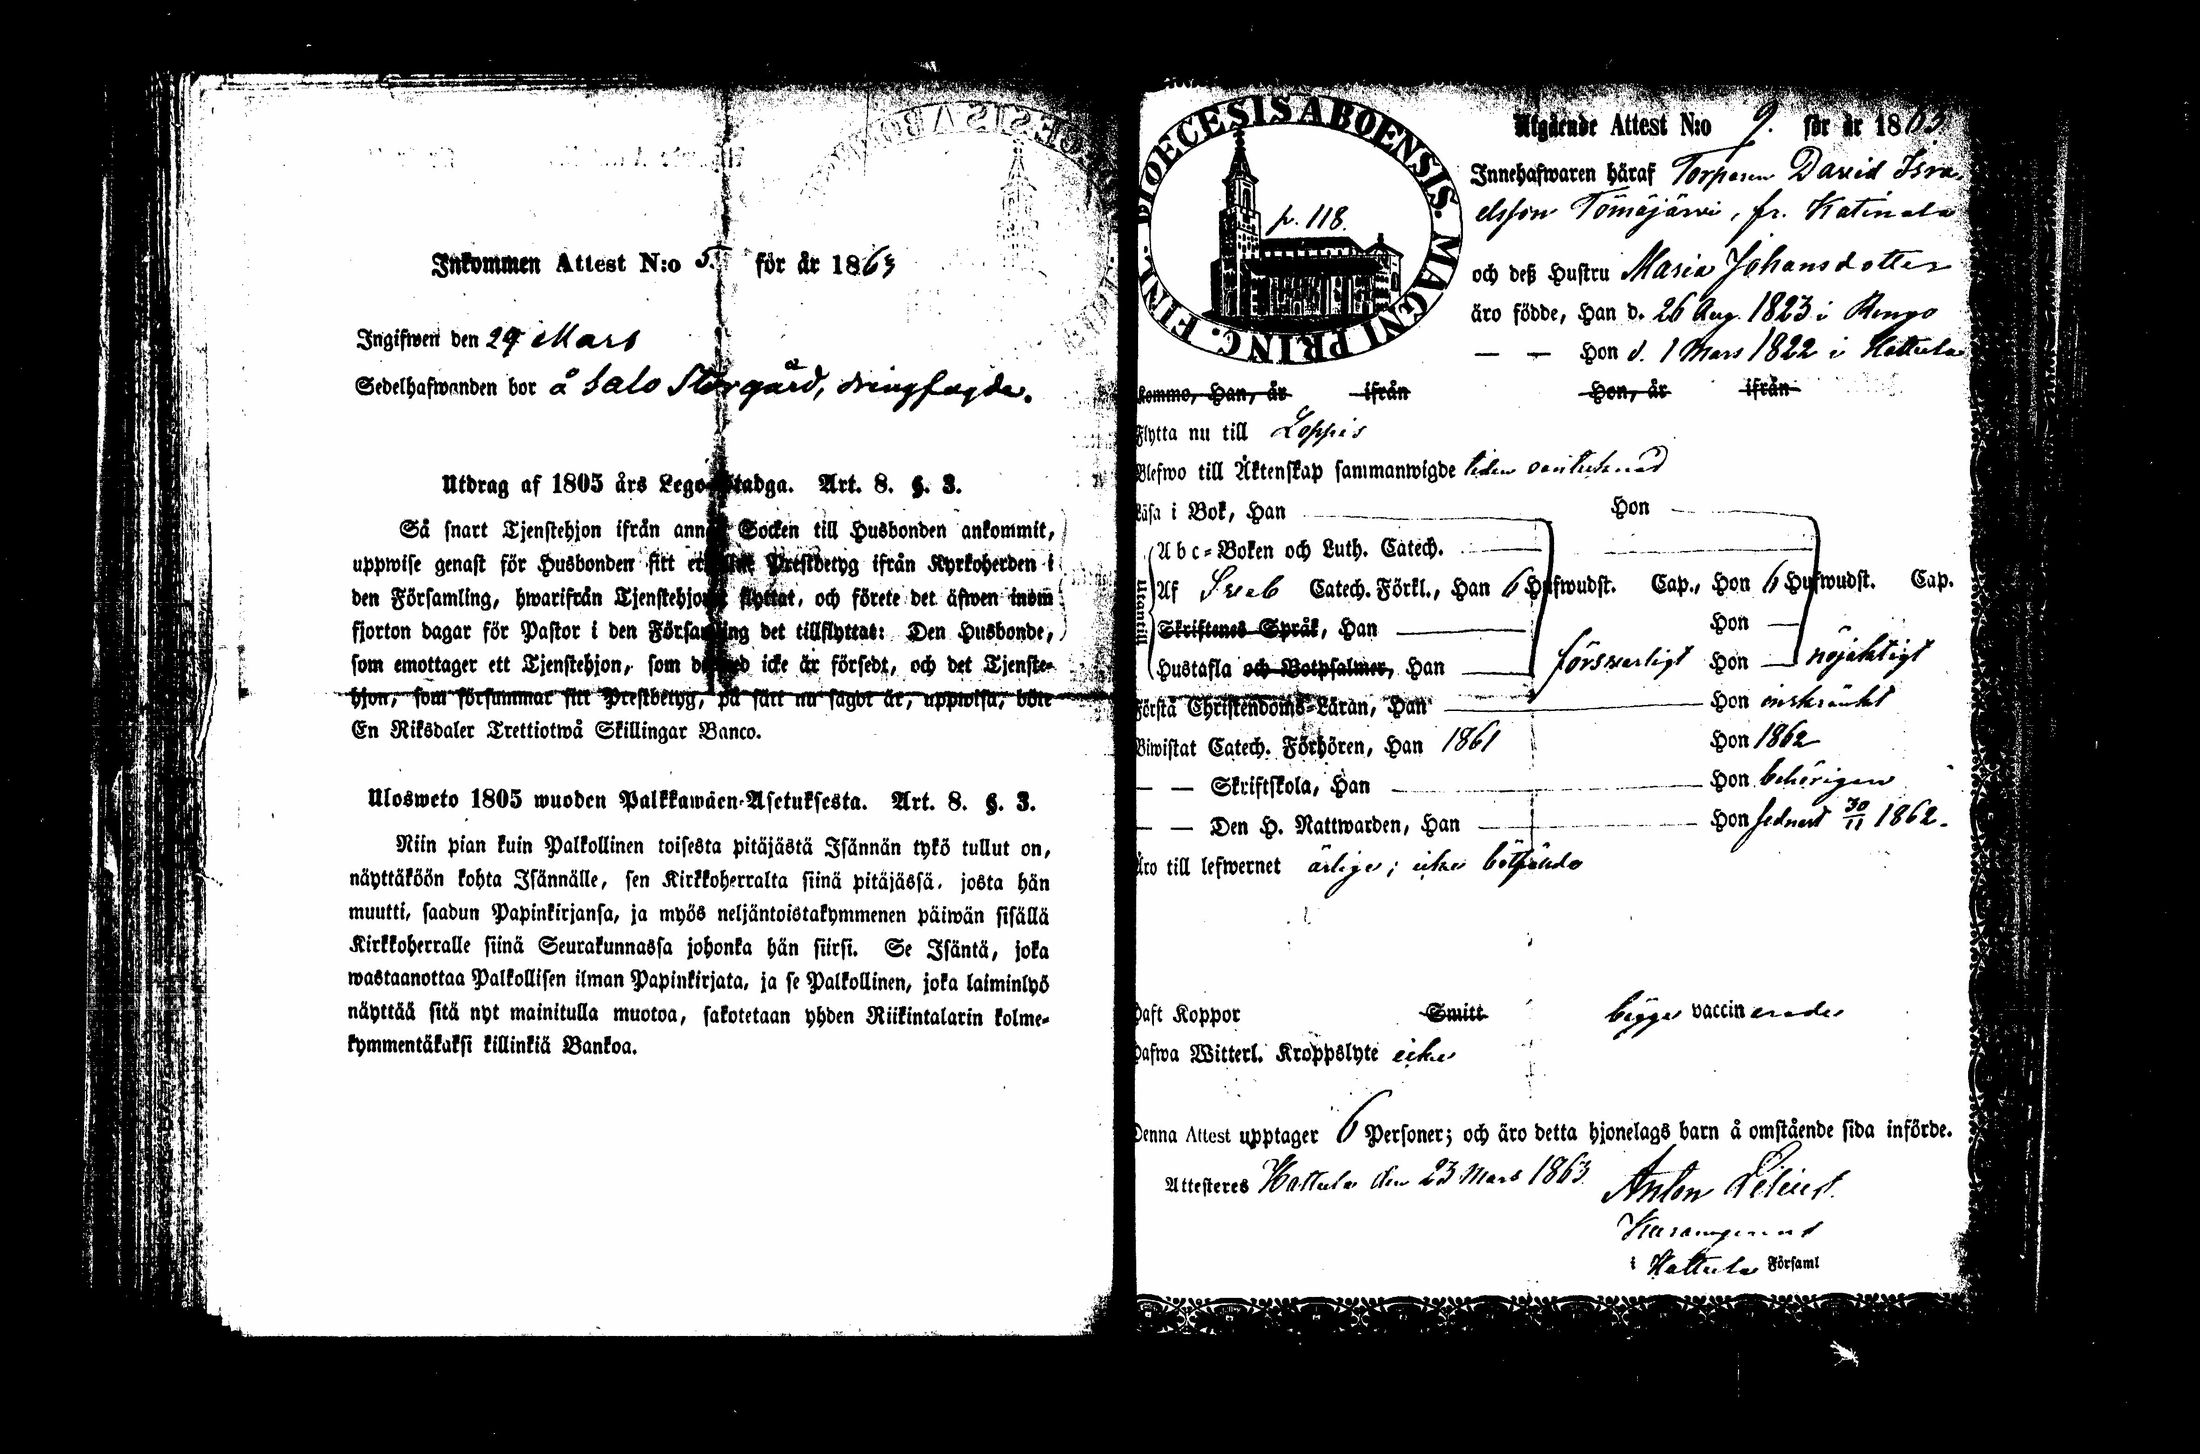 Inkommen Attest N:o 5. för år 1863
Ingifwen den 29 Mars
Sedelhafwanden bor å Salo Storgård,
Utdrag af 1805 års Lego-Stadga. Art. 8. §. 3.
Så snart Tjenstehjon ifrån annan Socken till Husbonden ankommit,
uppwise genast för Husbonden sitt erhållne Prestbetyg ifrån Kyrkoherden i
den Församling, hwarifrån Tjenstehjonet flyttat, och förete det äfwen inom
fjorton dagar för Pastor i den Församling det tillflyttat: Den Husbonde,
som emottager ett Tjenstehjon, som dermed icke är försedt, och det Tjenste-
hjon, som försummar sitt Prestbetyg, på sätt nu sagdt är, uppwisa, böte
En Riksdaler Trettiotwå Skillingar Banco.
Ulosweto 1805 wuoden Palkkawäen-Asetuksesta. Art. 8. §. 3.
Niin pian kuin Palkollinen toisesta pitäjästä Isännän tykö tullut on,
näyttäköön kohta Isännälle, sen Kirkkoherralta siinä pitäjässä, josta hän
muutti, saadun Papinkirjansa, ja myös neljäntoistakymmenen päiwän sisällä
Kirkkoherralle siinä Seurakunnassa johonka hän siirsi. Se Isäntä, joka
wastaanottaa Palkollisen ilman Papinkirjata, ja se Palkollinen, joka laiminlyö
näyttää sitä nyt mainitulla muotoa, sakotetaan yhden Riikintalarin kolme-
kymmentäkaksi killinkiä Bankoa.
DIOECESIS ABOENSIS. MAGNI PRINC. FINL.
p. 118.
Utgående Attest N:o 9. för år 1863
Innehafwaren häraf Torparen David Isra-
elsson Tömäjärvi, fr. Katinala
och deß Hustru Maria Johansdotter
äro födde, Han d. 26 Aug. 1823 i Rengo
— — Hon d. 1 Mars 1822 i Hattula
kommo, Han, år ifrån Hon, år ifrån
Flytta nu till Loppis
Blefwo till Äktenskap sammanwigde
Läsa i Bok, Han Hon
Utantill
Abc-Boken och Luth. Catech.
Af Sveb Catech. Förkl., Han 6 Hufwudst. Cap., Hon 6 Hufwudst. Cap.
Skriftenes Språk, Han Hon
Hustafla och Botpsalmer, Han försvarligt Hon nöjaktigt
Förstå Christendoms-Läran, Han Hon inskränkt
Biwistat Catech. Förhören, Han 1861 Hon 1862
— — Skriftskola, Han Hon behörigen
— — Den H. Nattwarden, Han Hon sednast 30/11 1862.
Äro till lefwernet ärliga; icke
Haft Koppor Smitt bägge vaccinerade
Hafwa Witterl. Kroppslyte icke
Denna Attest upptager 6 Personer; och äro detta hjonelags barn å omstående sida införde.
Attesteres Hattula den 23 Mars 1863.
Anton
i Hattula Församl